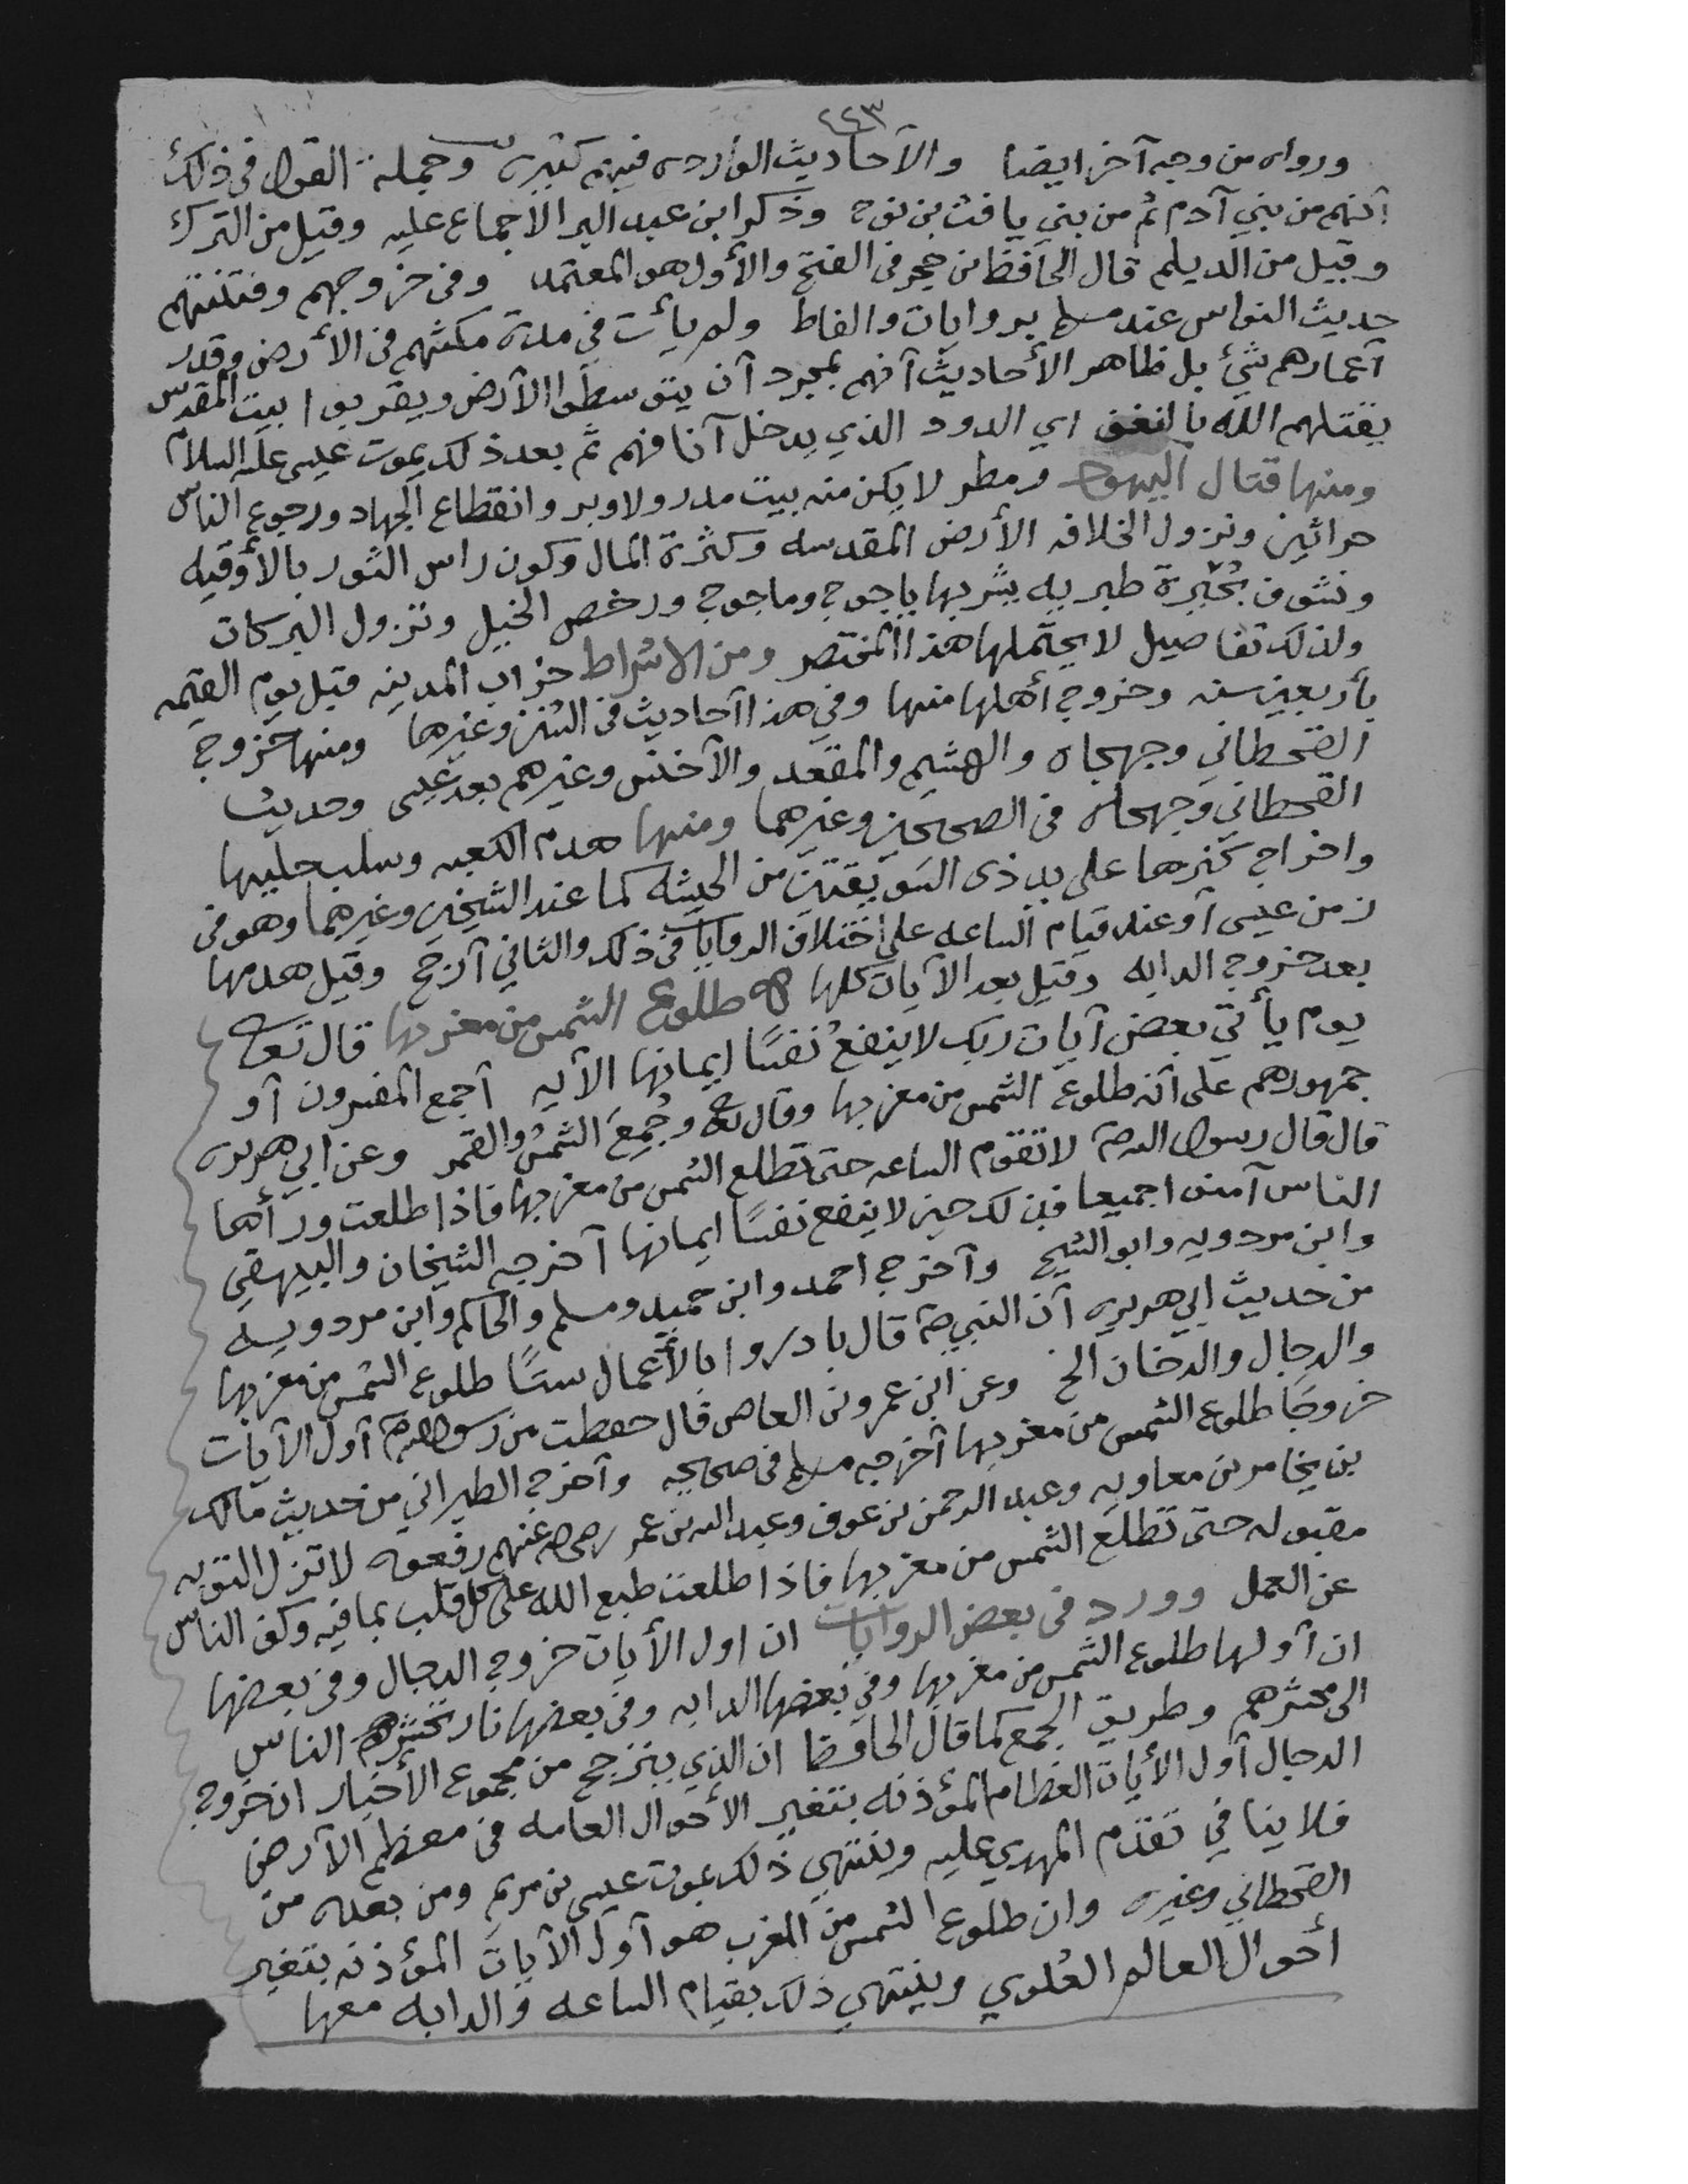 ٤٤٣
ورواه من وجه آخر ايضا والآحاديث الوارده فيهم كثيره وجملة القول في ذلك
آنهم من بني آدم ثم من بني يافث بن نوح وذكر ابن عبد البر الاجماع عليه وقيل من الترك
وقيل من الديلم قال الحافظ بن حجر في الفتح والأول هو المعتمد وفي خروجهم وفتنتهم
حديث النواس عند مسلم بروايات والفاظ ولم يأت في مدة مكثهم في الأرض وقدر
آعمارهم شئ بل ظاهر الأحاديث آنهم بمجرد آن يتوسطوا الآرض ويقربوا بيت المقدس
يقتلهم الله بالنغف اي الدود الذي يدخل آنافهم ثم بعد ذلك يموت عيسى عليه السلام
ومنها قتال اليهود ومطر لا يكن منه بيت مدر ولا وبر وانقطاع الجهاد ورجوع الناس
حراثين ونزول الخلافه الأرض المقدسه وكثرة المال وكون راس الثور بالأوقيه
ونشوف بُحَيرة طبريه يشربها ياجوج وماجوج ورخص الخيل ونزول البركات
ولذلك تفاصيل لا يحتملها هذا المختصر ومن الاشراط خراب المدينه قبل يوم القيمه
بأربعين سنه وخروج أهلها منها وفي هذا آحاديث في السنن وغيرها ومنها خروج
القحطاني وجهجاه والهشيم والمقعد والآخنس وغيرهم بعد عيسى وحديث
القحطاني وجهجاه في الصحيحين وغيرهما ومنها هدم الكعبه وسلب حليها
واخراج كنزها على يد ذى السويقتين من الحبشه كما عند الشيخين وغيرهما وهو في
زمن عيسى آو عند قيام الساعه على اختلاف الروايات في ذلك والثاني آرجح وقيل هدمها
بعد خروج الدابه وقيل بعد الآيات كلها طلوع الشمس من مغربها قال تعالى
يوم يأتي بعض آيات ربك لا ينفعُ نفسًا إيمانها الآيه آجمع المفسرون آو
جمهورهم على آنه طلوع الشمس من مغربها وقال تعالى وجُمِعَ الشمسُ والقمر وعن ابي هريره
قال قال رسول الله لا تقوم الساعه حتى تطلع الشمس من مغربها فاذا طلعت ورأها
الناس آمنوا جميعا فذلك حين لا ينفع نفسًا ايمانها آخرجه الشيخان والبيهقي
وابن مردويه وابو الشيخ وآخرج احمد وابن حميد ومسلم والحاكم وابن مردويه
من حديث ابي هريره آن النبي قال بادروا بالأعمال ستًا طلوع الشمس من مغربها
والدجال والدخان الخ وعن ابن عمرو بن العاص قال حفظت من رسول الله آول الآيات
خروجًا طلوع الشمس من مغربها آخرجه مسلم في صحيحه وآخرج الطبراني من حديث مالك
بن يخامر بن معاويه وعبد الرحمن بن عوف وعبد الله بن عمر رضي الله عنهم رفعوه لا تزل التوبه
مقبوله حتى تطلع الشمس من مغربها فاذا طلعت طبع الله على كل قلب بما فيه وكفى الناس
عن العمل وورد في بعض الروايات ان اول الأيات خروج الدجال وفي بعضها
ان آولها طلوع الشمس من مغربها وفي بعضها الدابه وفي بعضها نار تحشرهم الناس
الى محشرهم وطريق الجمع كما قال الحافظ ان الذي يترجح من مجموع الأخبار ان خروج
الدجال آول الأيات العظام المؤذنه بتغير الأحوال العامه في معظم الآرض
فلا ينافي تقدم المهدي عليه وينتهي ذلك بموت عيسى بن مريم ومن بعده من
القحطاني وغيره وان طلوع الشمس من المغرب هو آول الآيات المؤذنه بتغير
أحوال العالم العُلوي وينتهي ذلك بقيام الساعه والدابه معها